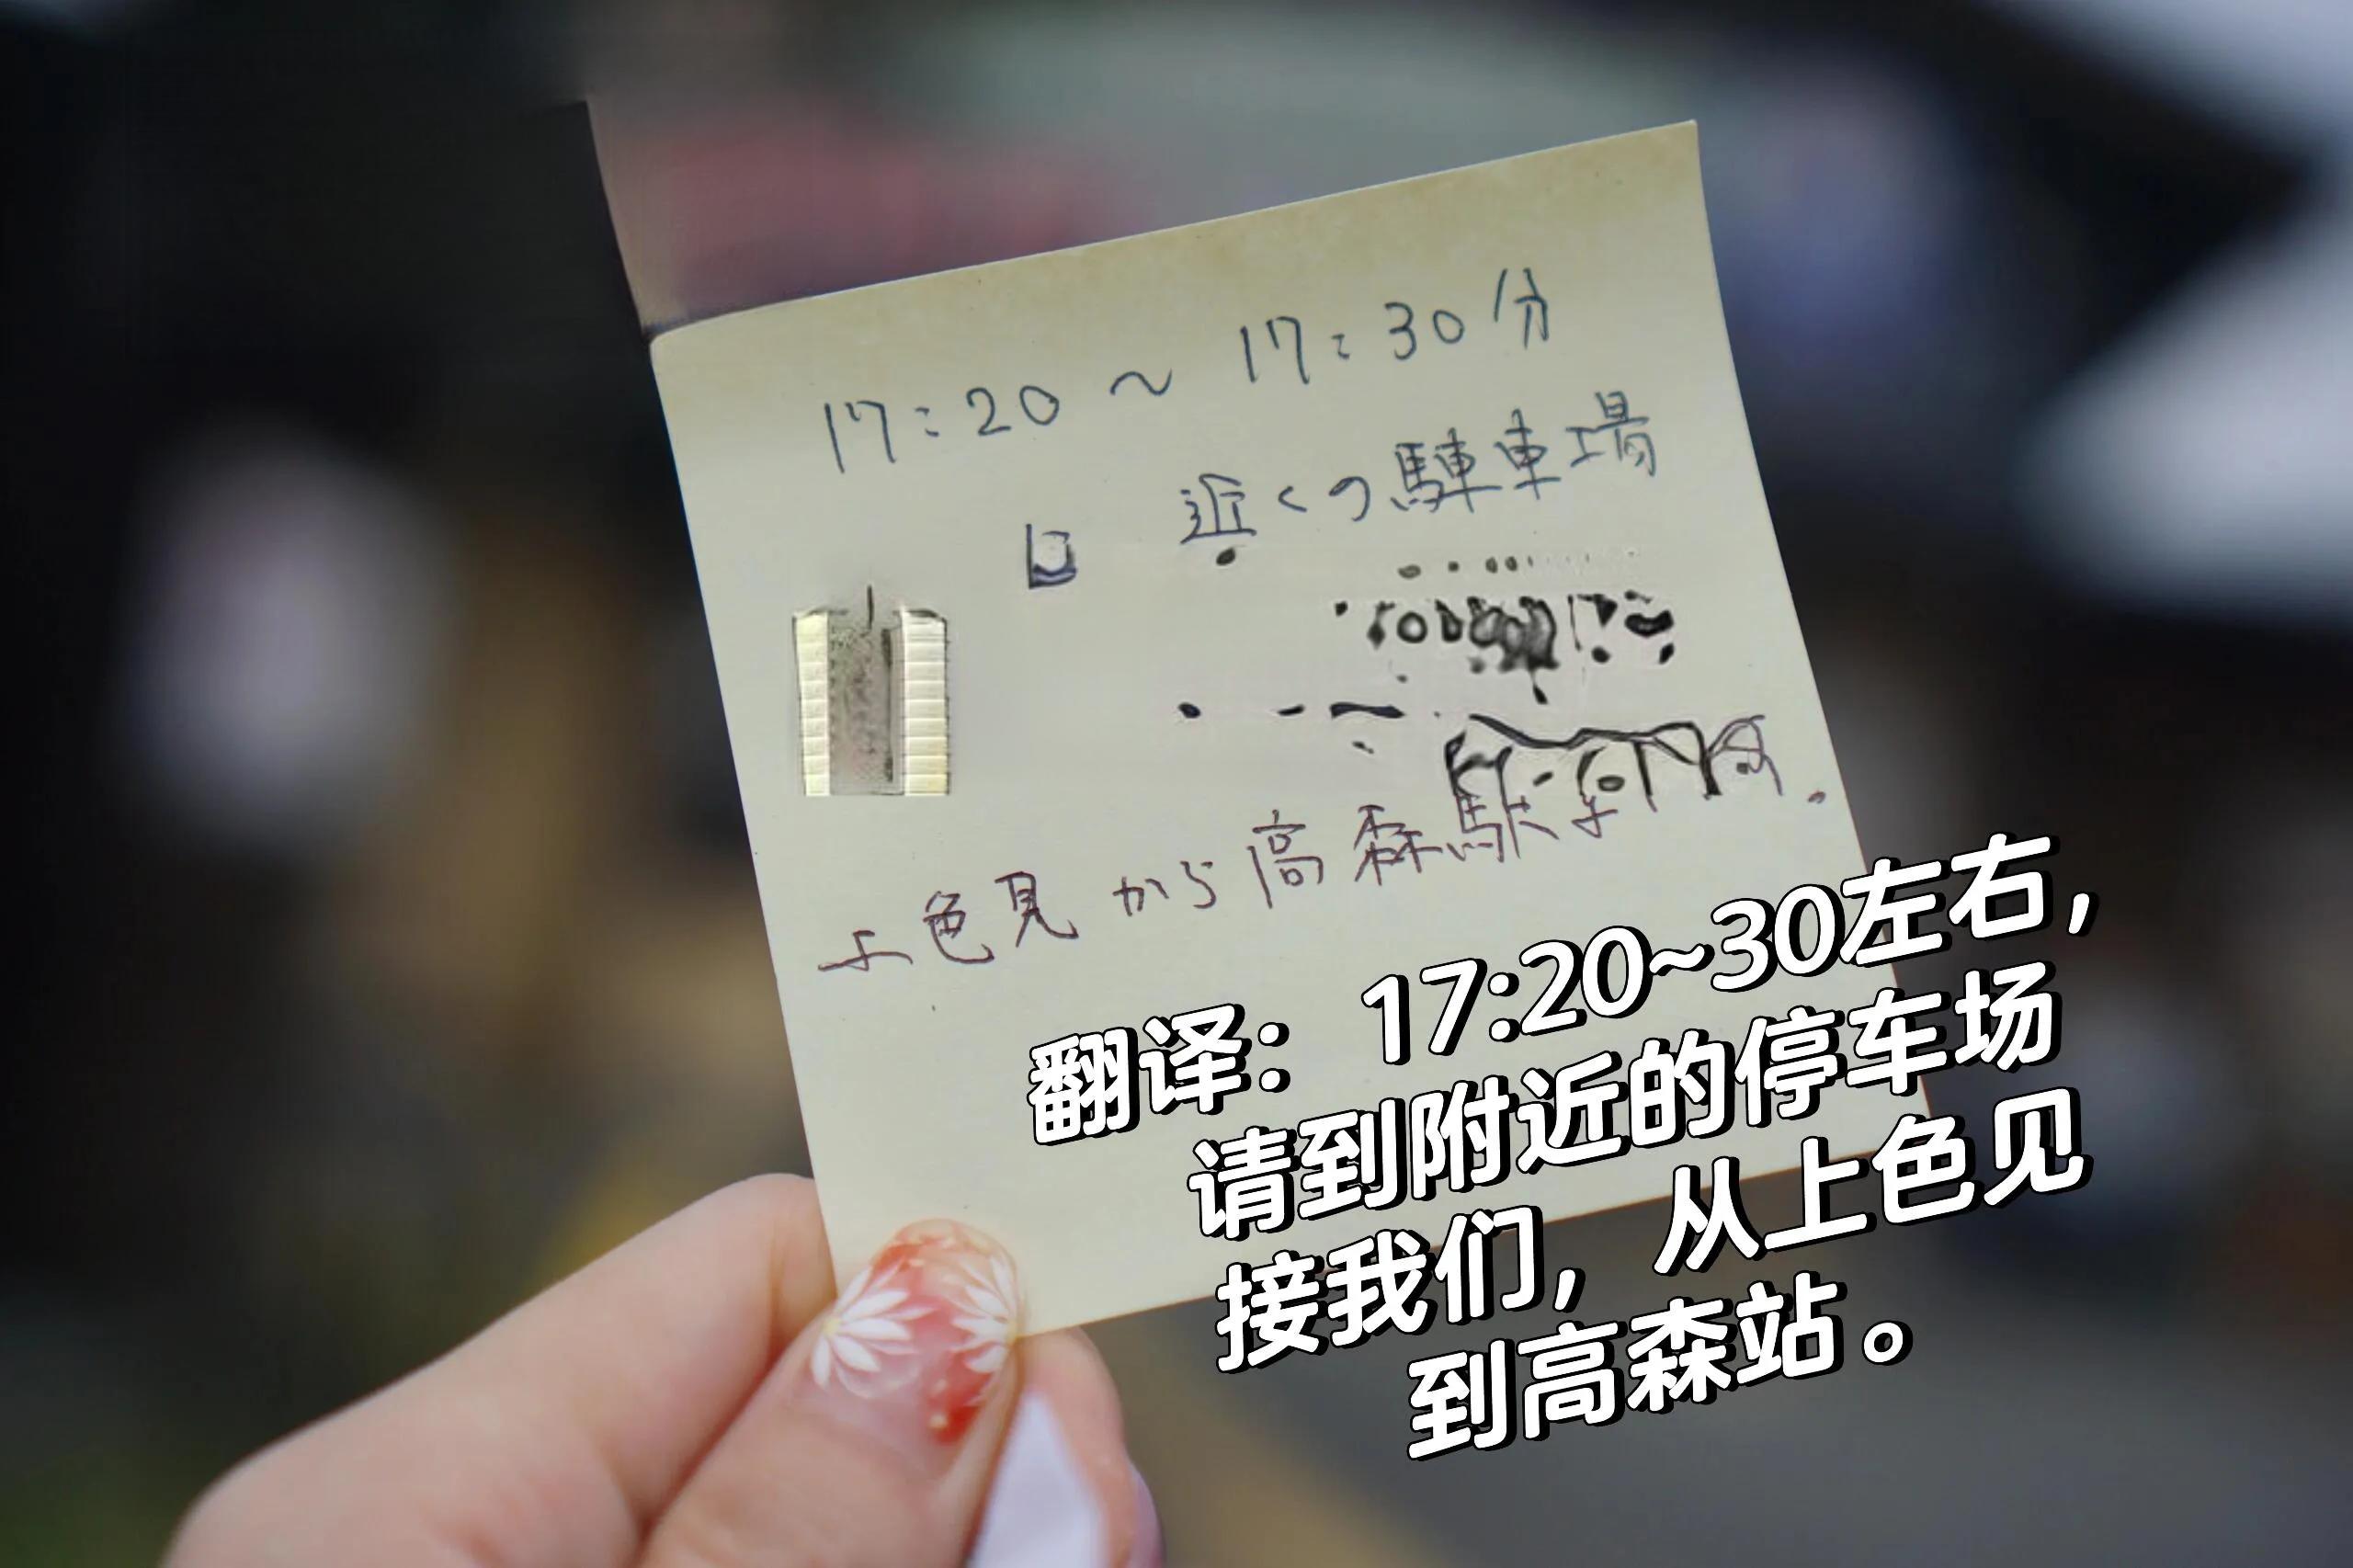 17:20 ~ 17:30分
近くの駐車場
上色見から高森駅
翻译：17:20~30左右，
请到附近的停车场
接我们，从上色见
到高森站。